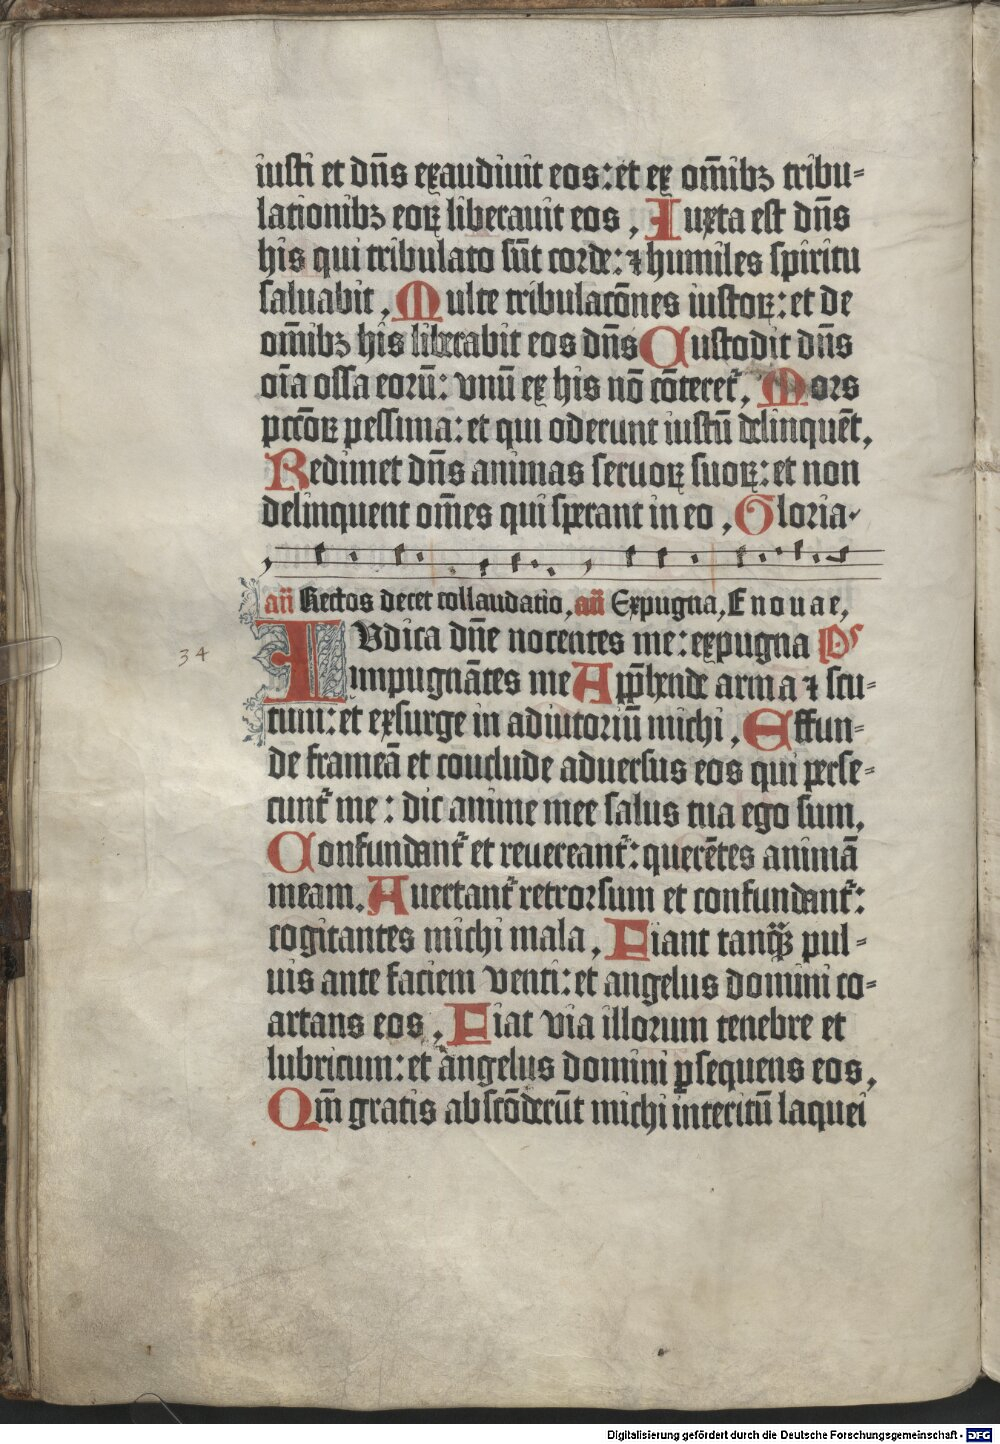 iusti et dn̄s exaudiuit eos: et ex om̄ibꝫ tribu-
lationibꝫ eoꝝ liberauit eos, Iuxta est dn̄s
his qui tribulato sūt corde: ⁊ humiles spiritu
saluabit, Multe tribulacōnes iustoꝝ: et de
om̄ibꝫ his liberabit eos dn̄s Custodit dn̄s
oīa ossa eorū: vnū ex his nō cōteret᷑, Mors
pctōꝝ pessima: et qui oderunt iustū delinquēt,
Redimet dn̄s animas seruoꝝ suoꝝ: et non
delinquent om̄es qui sperant in eo, Gloria
an̄ Rectos decet collaudatio, an̄ Expugna, E n o u a e,
34
IVdica dn̄e nocentes me: expugna Ps
impugnātes me Apph̄ende arma ⁊ scu-
tum: et exsurge in adiutoriū michi, Effun-
de frameā et conclude aduersus eos qui perse-
cunt᷑ me: dic anime mee salus tua ego sum,
Confundant᷑ et reuereant᷑: querētes animā
meam, Auertant᷑ retrorsum et confundant᷑:
cogitantes michi mala, Fiant tanqꝫ pul-
uis ante faciem venti: et angelus domini co-
artans eos, Fiat via illorum tenebre et
lubricum: et angelus domini ꝑsequens eos,
Qm̄ gratis abscōderūt michi interitū laquei
Digitalisierung gefördert durch die Deutsche Forschungsgemeinschaft - DFG